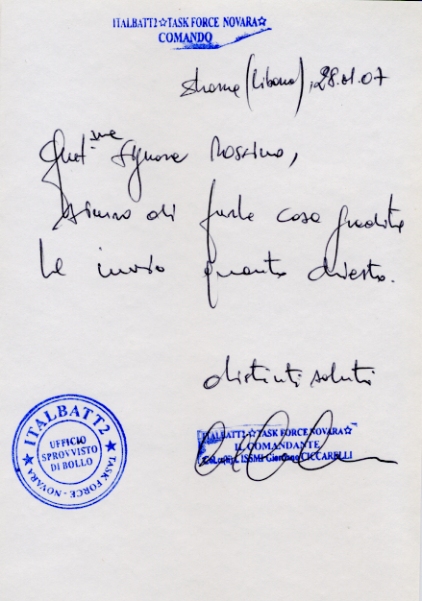 ITALBATT2☆TASK FORCE NOVARA☆
COMANDO
Shama (Libano), 28.01.07
Gent.me Signora Rossino,
sicuro di farle cosa gradita
Le invio quanto chiesto.
distinti saluti
ITALBATT2☆TASK FORCE NOVARA☆
IL COMANDANTE
ISSMI Giordano CICCARELLI
ITALBATT2
UFFICIO
SPROVVISTO
DI BOLLO
TASK FORCE - NOVARA